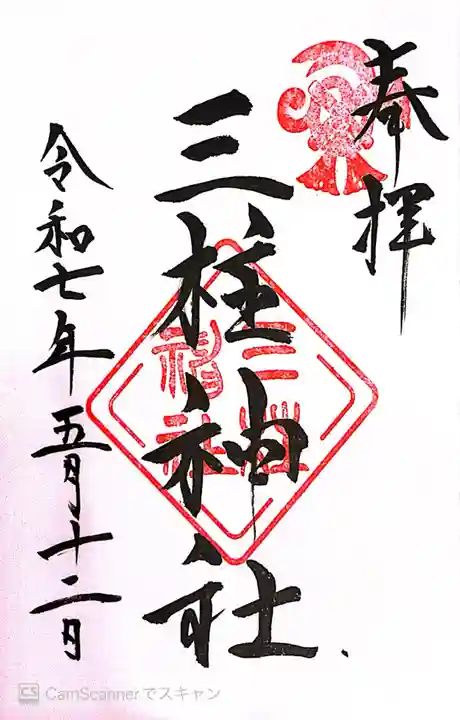 奉拝
三柱神社
三柱神社
令和七年五月十二日
CS CamScannerでスキャン